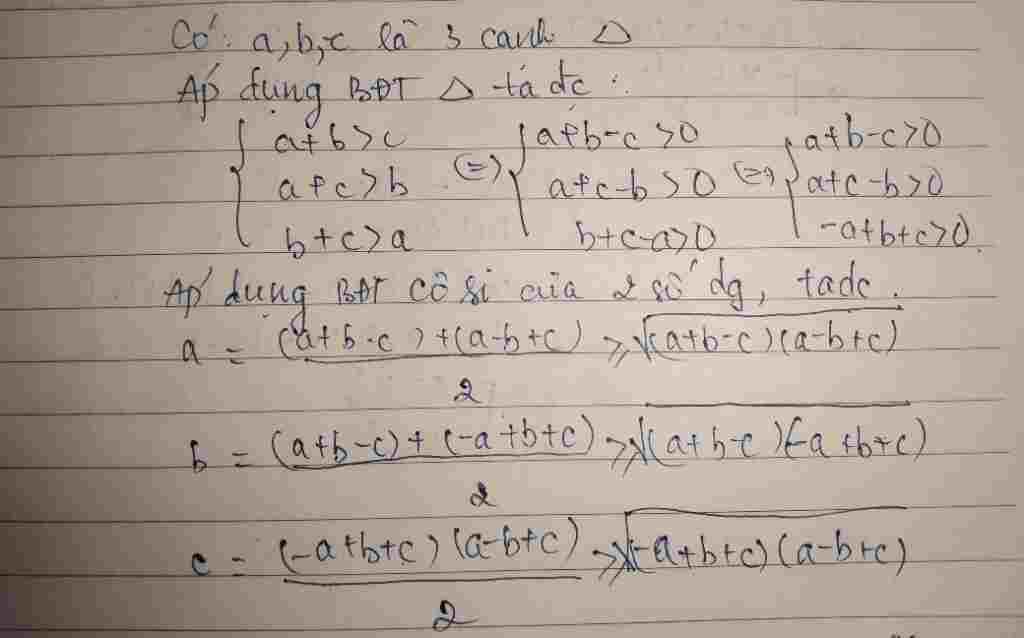 Có: a,b,c là 3 cạnh △
Áp dụng BĐT △ ta đc :
{ a+b>c (=) { a+b-c>0 (=) { a+b-c>0
a+c>b a+c-b>0 a+c-b>0
b+c>a b+c-a>0 -a+b+c>0.
Áp dụng BĐT cô si của 2 số dg, ta đc.
a = (a+b-c)+(a-b+c)/2 ≥ √(a+b-c)(a-b+c)
b = (a+b-c)+(-a+b+c)/2 ≥ √(a+b-c)(-a+b+c)
c = (-a+b+c)(a-b+c)/2 ≥ √(-a+b+c)(a-b+c)